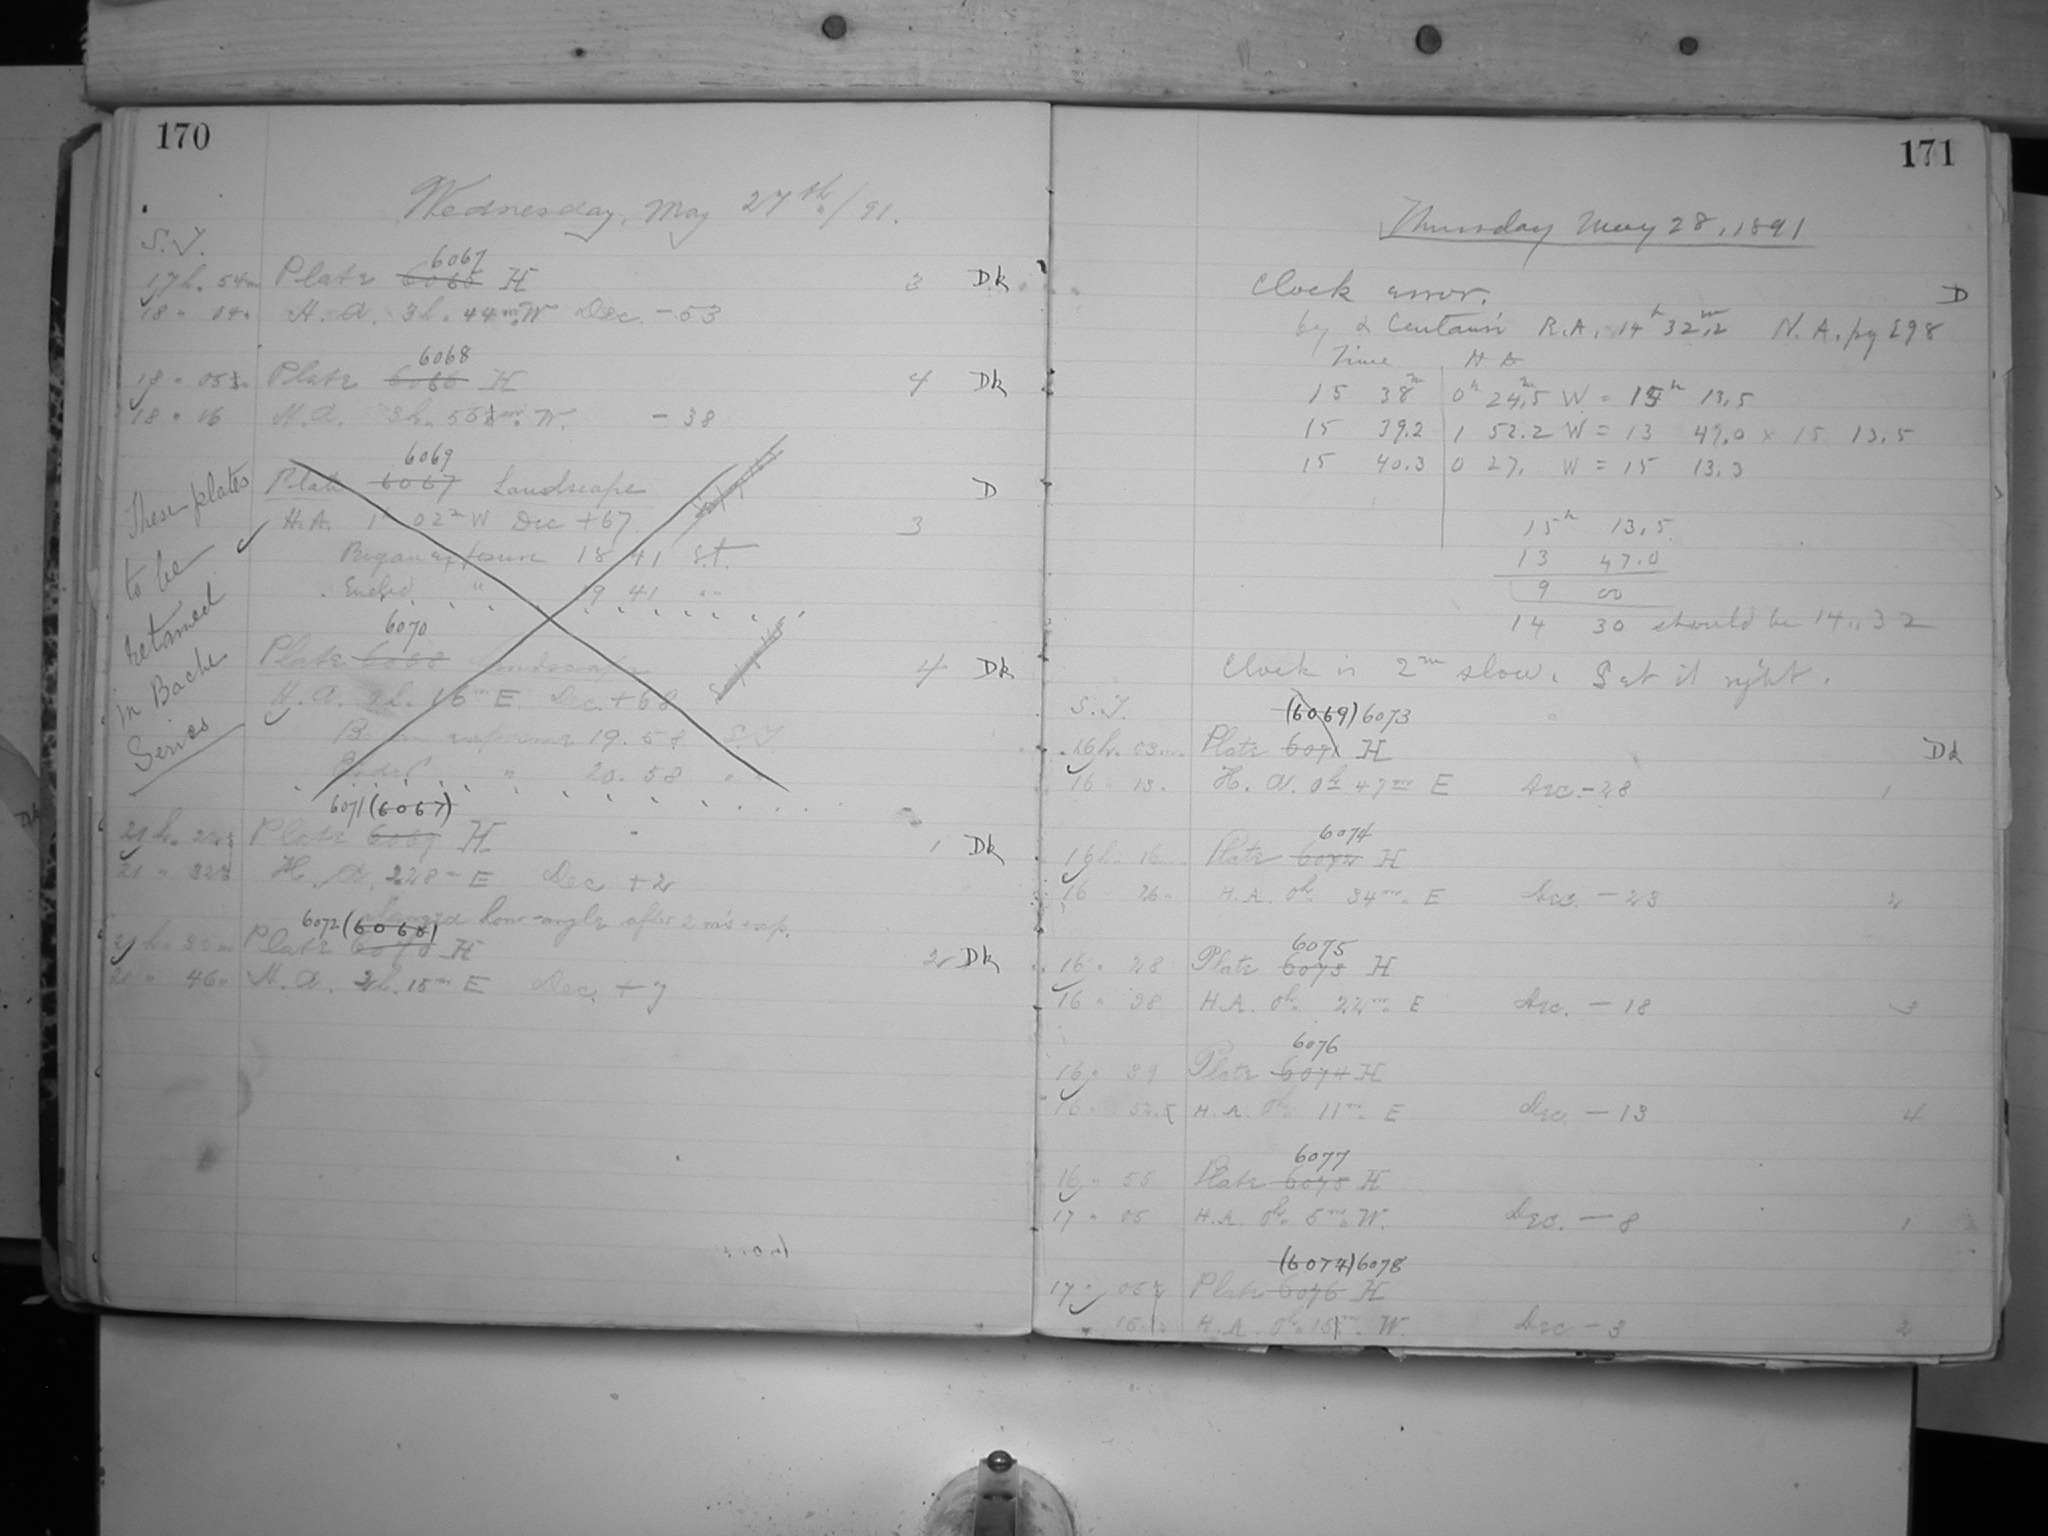 170
Wednesday, May 27th/91.
S.T.
6067
17h. 54m Plate 6065 H 3 Dk
18 " 04 " H.A. 3h. 44m. W Dec. -53
6068
18 " 05 Plate 6066 H 4 Dk
18 " 16 H.A. 3h. W. -38
6069
Plate 6067 Landscape D
H.A. 1h 02m W Dec +67 3
Began exposure 18 41 S.T.
Ended " 19 41 "
6070
Plate 6068 Landscape 4 Dk
H.A. 2h. 16m E. Dec. +68
Began exposure 19.58 S.T.
Ended " 20.58 " "
These plates
to be
retained
in Bache
Series
6071 (6067)
Plate 6069 H 1 Dk
H.A. 2 28m E Dec +2
changed hour-angle after 2 m's exp.
6072 (6068)
21h. 36m Plate 6070 H 2 Dk
21 " 46 " H.A. 2h. 15m E Dec. +7
171
Thursday May 28, 1891
Clock error. D
by α Centauri R.A. 14h 32m.2 N.A. pg 298
Time H A
15 38m 0h 24m.5 W = 15h 13.5
15 39.2 1 52.2 W = 13 47.0 × 15 13.5
15 40.3 0 27. W = 15 13.3
15h 13.5
13 47.0
9 00
14 30 should be 14..32
Clock is 2m slow. Set it right.
S.T.
(6069) 6073
16h. 03m. Plate 6071 H Dk
16 " 13 " H.A. 0h 47m E Dec. -28 1
6074
16h. 16 Plate 6072 H
16 " 26 " H.A. 0h. 34m. E Dec. -23 2
6075
16 " 28 Plate 6073 H
16 " 38 H.A. 0h. 22m. E Dec. -18 3
6076
16 " 39 Plate 6074 H
16 52.5 H.A. 0h. 11m. E Dec. -13 4
6077
16 " 55 Plate 6075 H
17 " 05 H.A. 0h. 5m. W. Dec. -8 1
(6074) 6078
17 " 06 Plate 6076 H
" 16 H.A. 0h. 15m. W. Dec -3 2